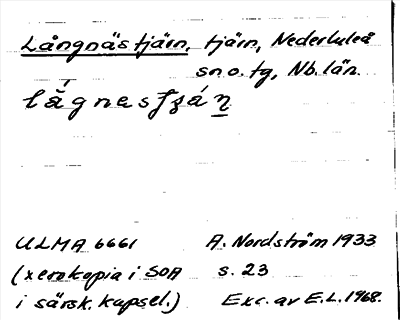 Långnästjärn, tjärn, Nederluleå
sn o. tg, Nb. län.
lågnesʃzán
ULMA 6661 A. Nordström 1933
(xerokopia i SOA s. 23
i särsk. kapsel.) Exc. av E.L. 1968.